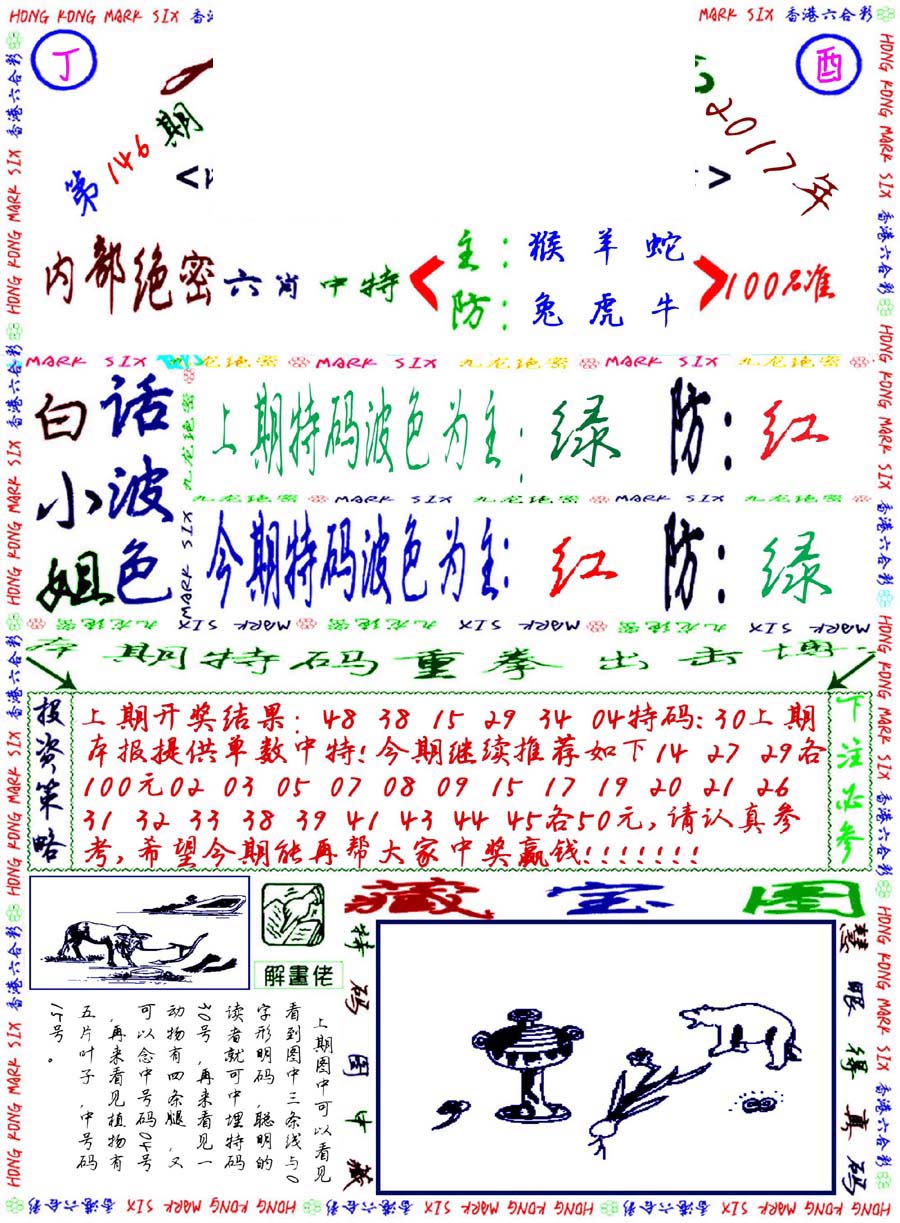 HONG KONG MARK SIX 香港六合彩
MARK SIX 香港六合彩
丁
酉
第146期
2017年
内部绝密六肖中特
主：猴 羊 蛇
防：兔 虎 牛
100%准
MARK SIX 九龙绝密 MARK SIX 九龙绝密 MARK SIX 九龙绝密
白话
小波
姐色
上期特码波色为主：绿 防：红
九龙绝密 MARK SIX 九龙绝密 MARK SIX 九龙绝密
今期特码波色为主：红 防：绿
MARK SIX 九龙绝密 MARK SIX 九龙绝密 MARK SIX 九龙绝密
期特码重拳出击
投资策略
上期开奖结果：48 38 15 29 34 04特码：30上期
本报提供单数中特！今期继续推荐如下14 27 29各
100元02 03 05 07 08 09 15 17 19 20 21 26
31 32 33 38 39 41 43 44 45各50元，请认真参
考，希望今期能再帮大家中奖赢钱！！！！！！！
下注必参
解畫佬
上期图中可以看见
看到图中三条线与0
字形明码，聪明的
读者就可中埋特码
30号，再来看见一
动物有四条腿，又
可以念中号码04号
，再来看见植物有
五片叶子，中号码
15号。
藏宝图
特码图中藏
慧眼得真码
HONG KONG MARK SIX 香港六合彩